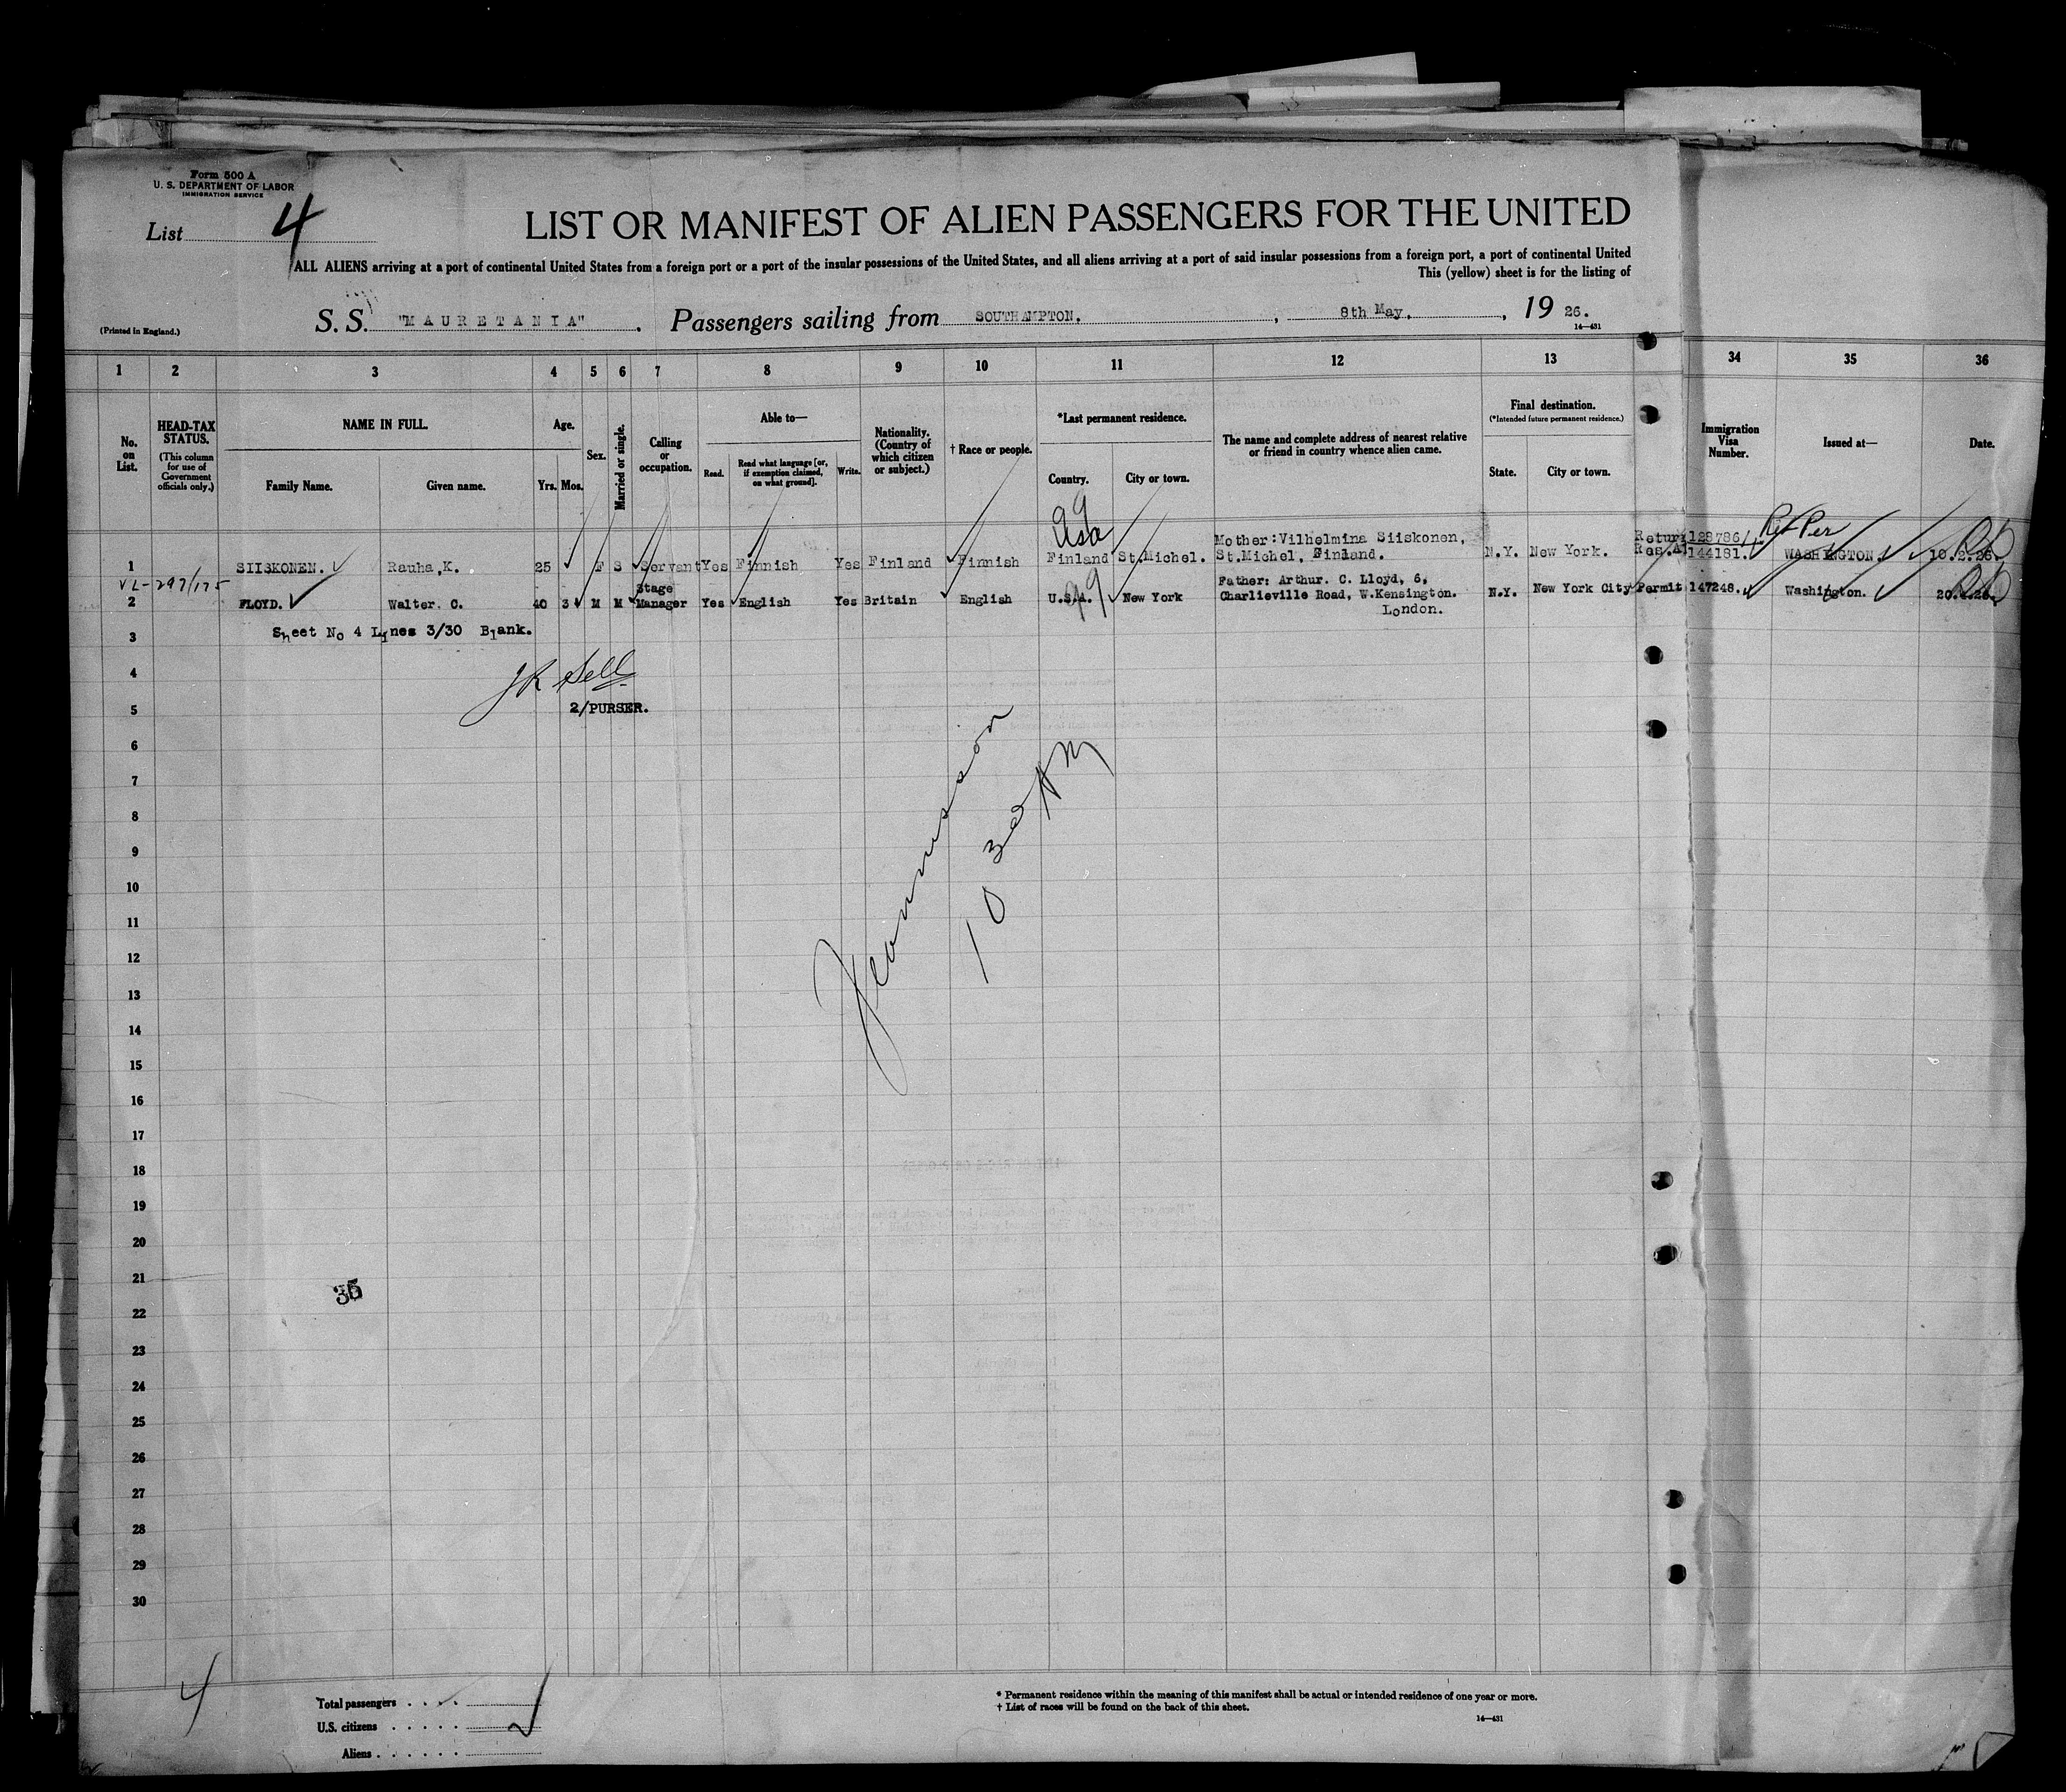 Form 500 A
U. S. DEPARTMENT OF LABOR
IMMIGRATION SERVICE
List 4
LIST OR MANIFEST OF ALIEN PASSENGERS FOR THE UNITED
ALL ALIENS arriving at a port of continental United States from a foreign port or a port of the insular possessions of the United States, and all aliens arriving at a port of said insular possessions from a foreign port, a port of continental United
This (yellow) sheet is for the listing of
(Printed in England.)
S. S. "MAURETANIA" . Passengers sailing from SOUTHAMPTON. , 8th May. , 19 26.
14—431
1 2 3 4 5 6 7 8 9 10 11 12 13 34 35 36
No. on List.
HEAD-TAX STATUS. (This column for use of Government officials only.)
NAME IN FULL.
Family Name. Given name.
Age.
Yrs. Mos.
Sex.
Married or single.
Calling or occupation.
Able to—
Read. Read what language [or, if exemption claimed, on what ground]. Write.
Nationality. (Country of which citizen or subject.)
† Race or people.
*Last permanent residence.
Country. City or town.
The name and complete address of nearest relative or friend in country whence alien came.
Final destination.
(*Intended future permanent residence.)
State. City or town.
Immigration Visa Number.
Issued at—
Date.
99
Usa
Ret Per
1 SIISKONEN. Rauha,K. 25 F S Servant Yes Finnish Yes Finland Finnish Finland St.Michel. Mother:Vilhelmina Siiskonen, St.Michel, Finland. N.Y. New York. 128786/ 144181. WASHINGTON. 10.2.26.
VL-297/175
2 FLOYD. Walter. C. 40 3 M M Stage Manager Yes English Yes Britain English U.S.A. New York Father: Arthur. C. Lloyd, 6, Charlieville Road, W.Kensington. London. N.Y. New York City Permit 147248. Washington.
99
3 Sheet No 4 Lines 3/30 Blank.
4
JR Sell
5 2/PURSER.
6
7
8
9
10
11
12
13
14
15
16
17
18
19
20
21
35
22
23
24
25
26
27
28
29
30
10 30 AM
4
Total passengers . . . .
U.S. citizens . . . . .
Aliens . . . . . .
* Permanent residence within the meaning of this manifest shall be actual or intended residence of one year or more.
† List of races will be found on the back of this sheet.
14—431